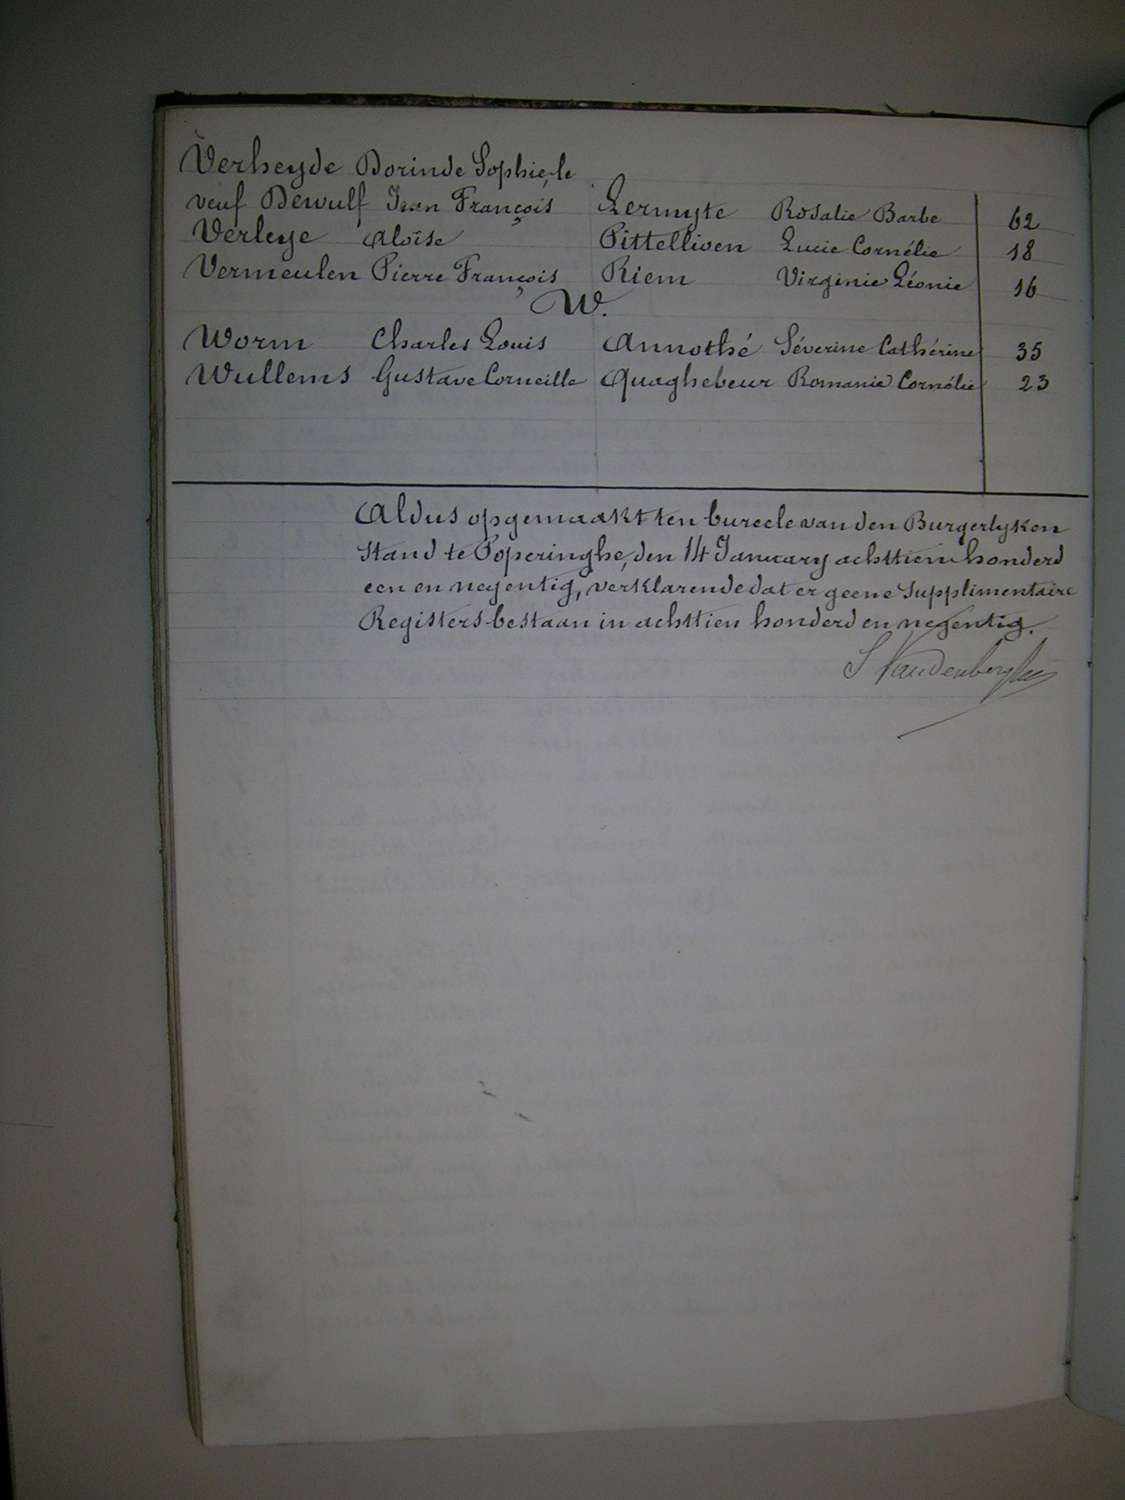 Verheyde Dorinde Sophie, le
veuf Dewulf Jean François Lermyte Rosalie Barbe 62
Verleye Aloïse Pittellioen Lucie Cornélie 18
Vermeulen Pierre François Riem Virginie Léonie 16
W.
Worm Charles Louis Annothé Séverine Cathérine 35
Wullems Gustave Corneille Quaghebeur Romanie Cornélie 23
Aldus opgemaakt ten bureele van den Burgerlyken
Stand te Poperinghe, den 14 January achttien honderd
een en negentig, verklarende dat er geene Supplimentaire
Registers bestaan in achttien honderd en negentig.
S Vandenberghe